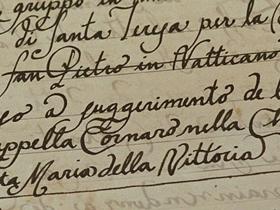 e gruppo in
di Santa Teresa per la
San Pietro in Vatticano
o a suggerimento de
ppella Cornaro nella Ch
ta Maria della Vittoria